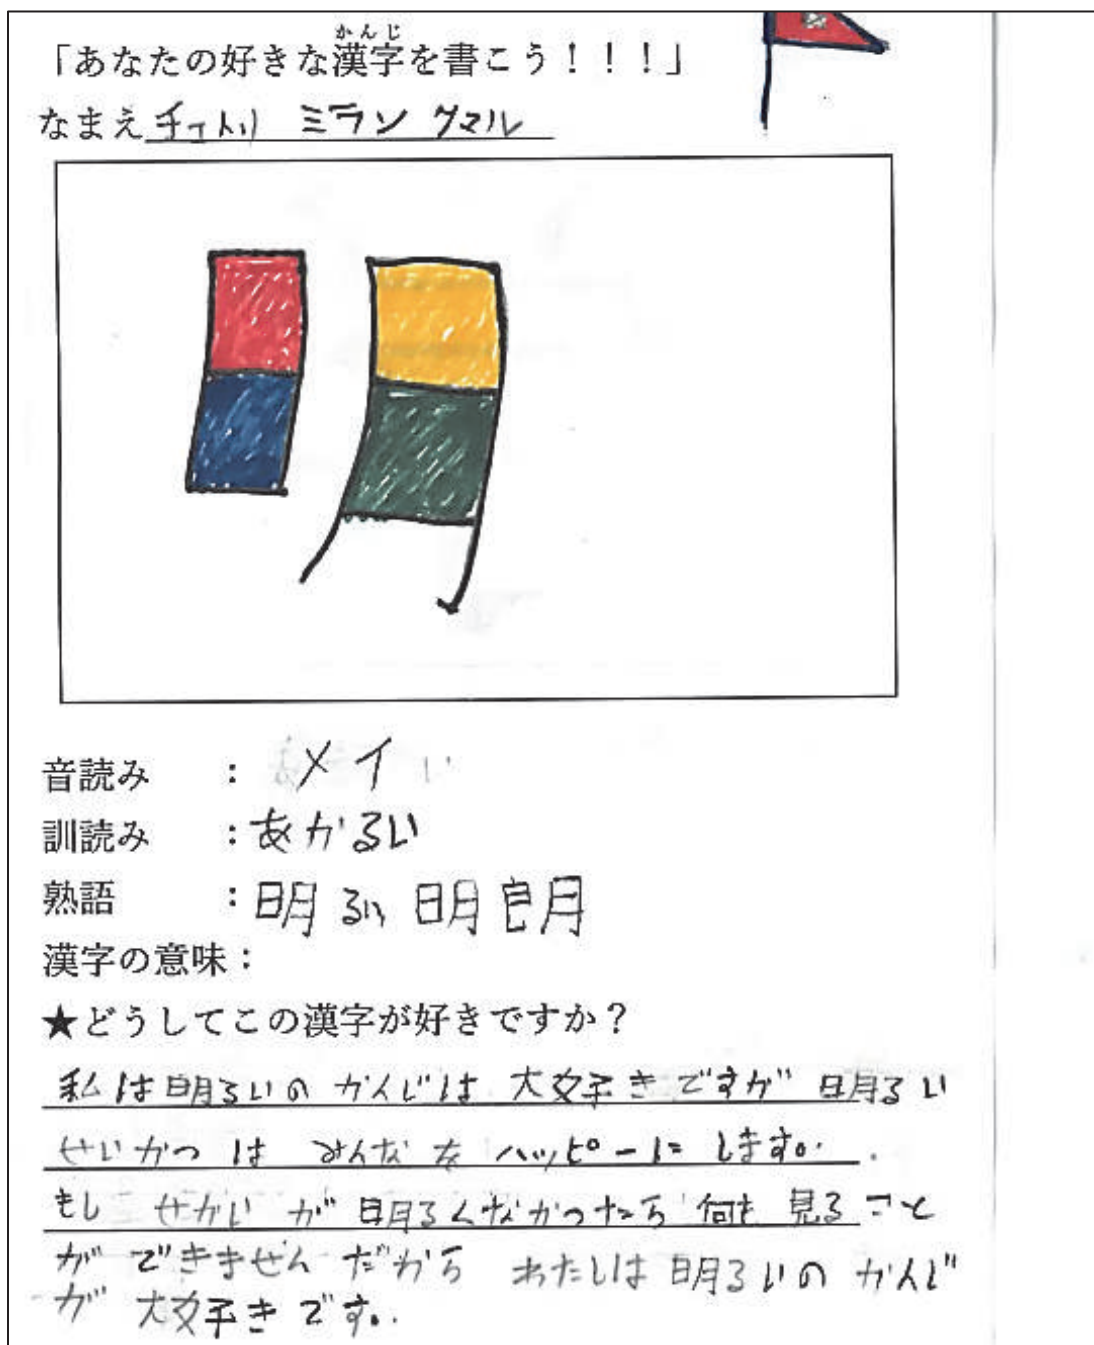 「あなたの好きな漢字を書こう！！！」
かんじ
なまえ チェトリ ミラン クマル
明
音読み ： メイ
訓読み ：あかるい
熟語 ：明るい 明朗
漢字の意味：
★どうしてこの漢字が好きですか？
私は明るいのかんじは 大好きですが 明るい
せいかつは みんなを ハッピーに します。
もし せかい が 明るくなかったら 何も 見る こと
が できません だから わたしは 明るいの かんじ
が 大好き です。